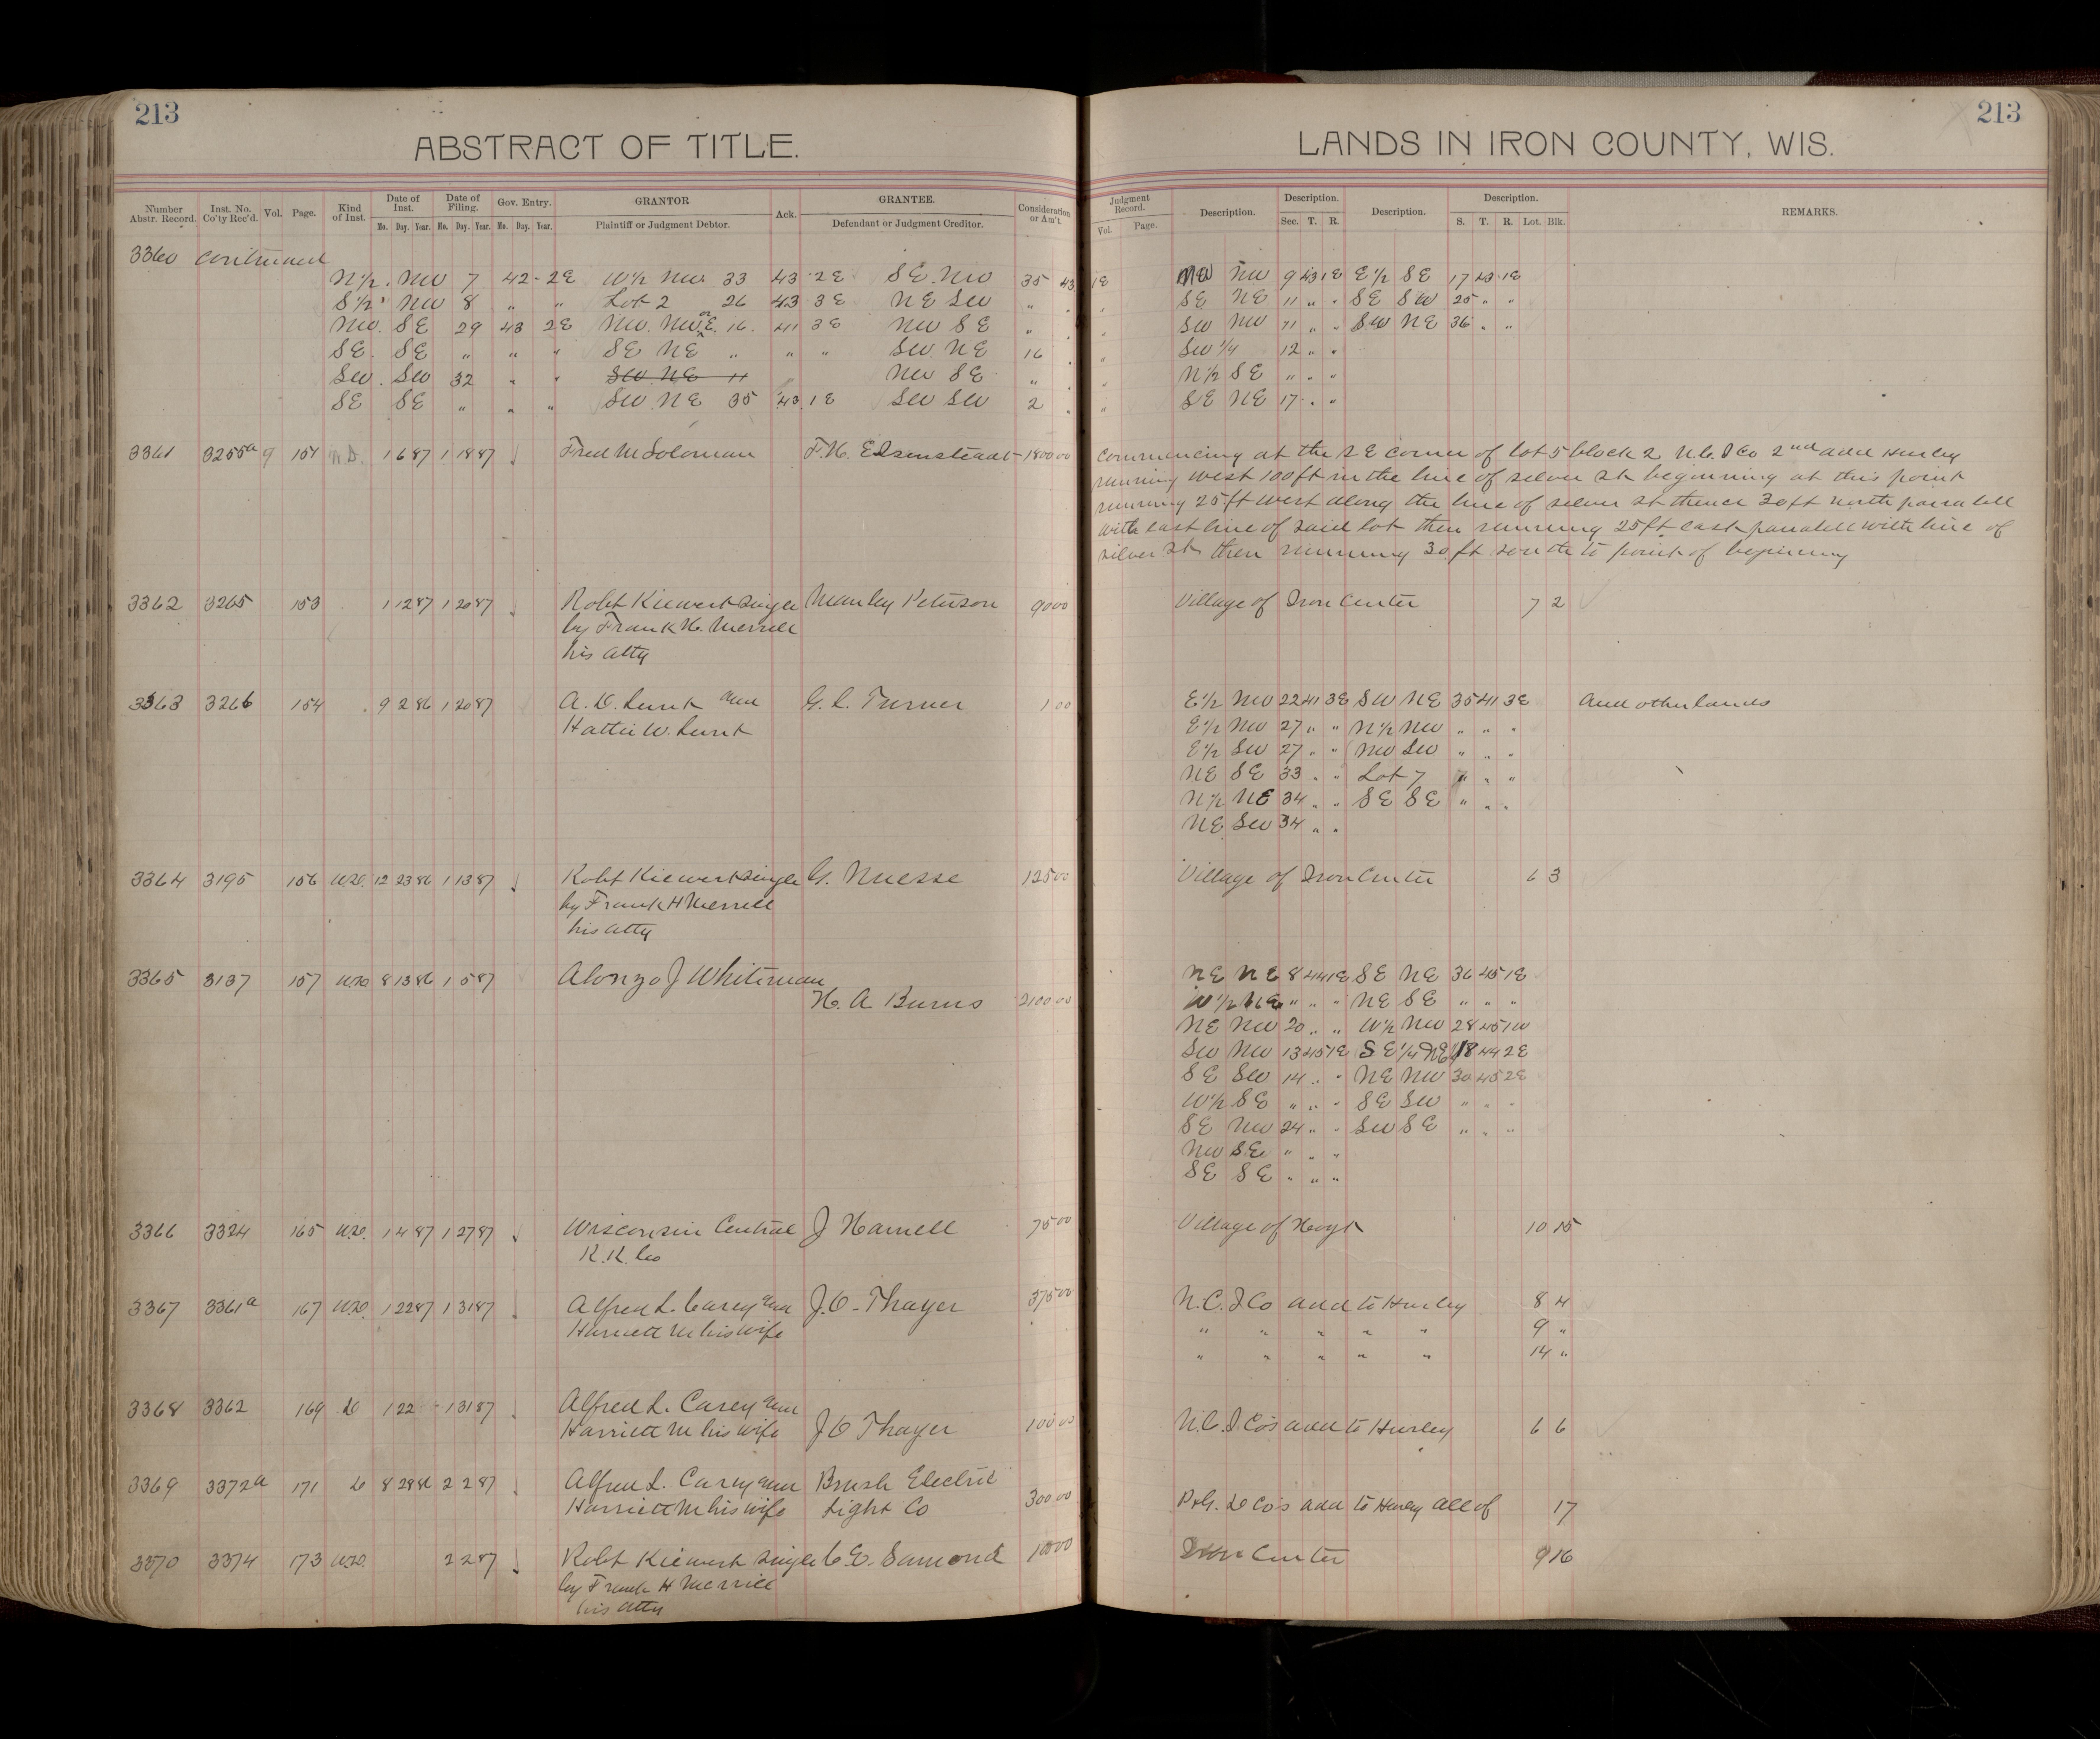 213
213
ABSTRACT OF TITLE.
LANDS IN IRON COUNTY, WIS.
Number Abstr. Record. Inst. No. Co'ty Rec'd. Vol. Page. Kind of Inst. Date of Inst. Mo. Day. Year. Date of Filing. Mo. Day. Year. Gov. Entry. Mo. Day. Year. GRANTOR Plaintiff or Judgment Debtor. Ack. GRANTEE. Defendant or Judgment Creditor. Consideration or Am't.
Judgment Record. Vol. Page. Description. Description. Sec. T. R. Description. Description. S. T. R. Lot. Blk. REMARKS.
3360 continued
N½ NW 7 42 - 2E W½ NW 33 43 2E SE NW 35 43 1E NW NW 9 43 1E E½ SE 17 43 1E
S½ NW 8 " " Lot 2 26 43 3E NE SW " " " SE NE 11 " " SE SW 25 " "
NW SE 29 43 2E NW. NW 16 41 3E NW SE " " " SW NW 11 " " SW NE 36 " "
SE SE " " " SE NE " " " SW NE 16 " " SW ¼ 12 " "
SW SW 32 " " SW NE 11 NW SE " " " N½ SE " " "
SE SE " " " SW NE 35 43 1E SW SW 2 " " SE NE 17 " "
3361 3255a 9 151 W.D. 1 6 87 1 18 87 Fred M Soloman 1800 00 Commencing at the SE corner of lot 5 block 2 N.C. I Co 2nd add Hurley
running west 100ft in the line of silver st beginning at this point
running 25ft west along the line of silver st thence 30ft north parralell
with east line of said lot then running 25ft east parralell with line of
silver st then running 30 ft south to point of beginning
3362 3265 153 1 12 87 1 20 87 Robt Kiewert single Manley Peterson 90 00 Village of Iron Center 7 2
by Frank H. Merrill
his atty
3363 3266 154 9 2 86 1 20 87 A. D. Lunt and G. L. Turner 1 00 E½ NW 22 41 3E SW NE 35 41 3E And other lands
Hattie W. Lunt E½ NW 27 " " N½ NW " " "
E½ SW 27 " " NW SW " " "
NE SE 33 " " Lot 7 " " "
N½ NE 34 " " SE SE " " "
NE SW 34 " "
3364 3195 156 W.D. 12 23 86 1 13 87 Robt Kiewert single G. Nuesse 125 00 Village of Iron Center 6 3
by Frank H Merrill
his atty
3365 3137 157 W.D. 8 13 86 1 5 87 Alonzo J Whiteman NE NE 8 44 1E SE NE 36 45 1E
H. A Burns 2100 00 W½ NE " " " NE SE " " "
NE NW 20 " " W½ NW 28 45 1W
SW NW 13 45 1E SE¼ NE 18 44 2E
SE SW 14 " " NE NW 30 45 2E
W½ SE " " " SE SW " " "
SE NW 24 " " SW SE " " "
NW SE " " "
SE SE " " "
3366 3324 165 W.D. 1 4 87 1 27 87 Wisconsin Central J Harnell 75 00 Village of Hoyt 10 15
R.R. Co
3367 3361a 167 W.D. 1 22 87 1 31 87 Alfred L. Carey and J.O. Thayer 375 00 N.C. I Co add to Hurley 8 4
Harriett M his wife " " " " " 9 "
" " " " " 14 "
3368 3362 169 D 1 22 1 31 87 Alfred L. Carey and
Harriett M his wife J O Thayer 100 00 N.C. I Co's add to Hurley 6 6
3369 3372a 171 D 8 28 86 2 2 87 Alfred L. Carey and Brush Electric
Harriett M his wife Light Co 300 00 Co's add to Hurley all of 17
3370 3374 173 W.D. 2 2 87 Robt Kiewert single 100 00 Iron Center 9 16
by Frank H Merrill
his atty